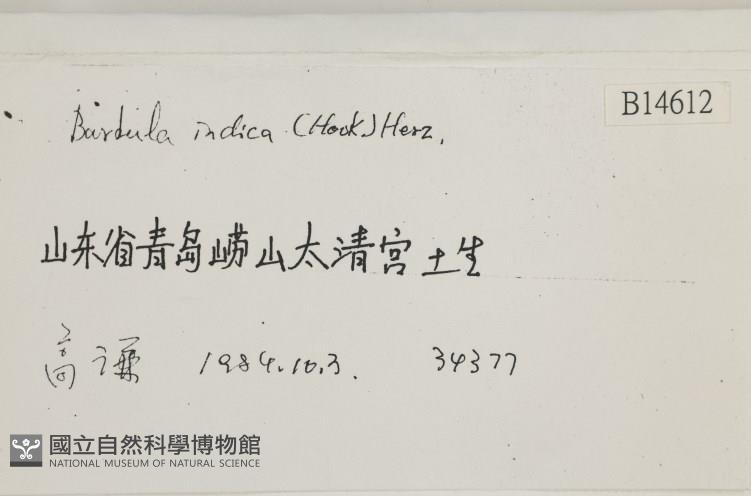 B14612
Barbula indica (Hook) Herz.
山东省青岛崂山太清宫 土生
高谦 1984.10.3. 34377
國立自然科學博物館
NATIONAL MUSEUM OF NATURAL SCIENCE